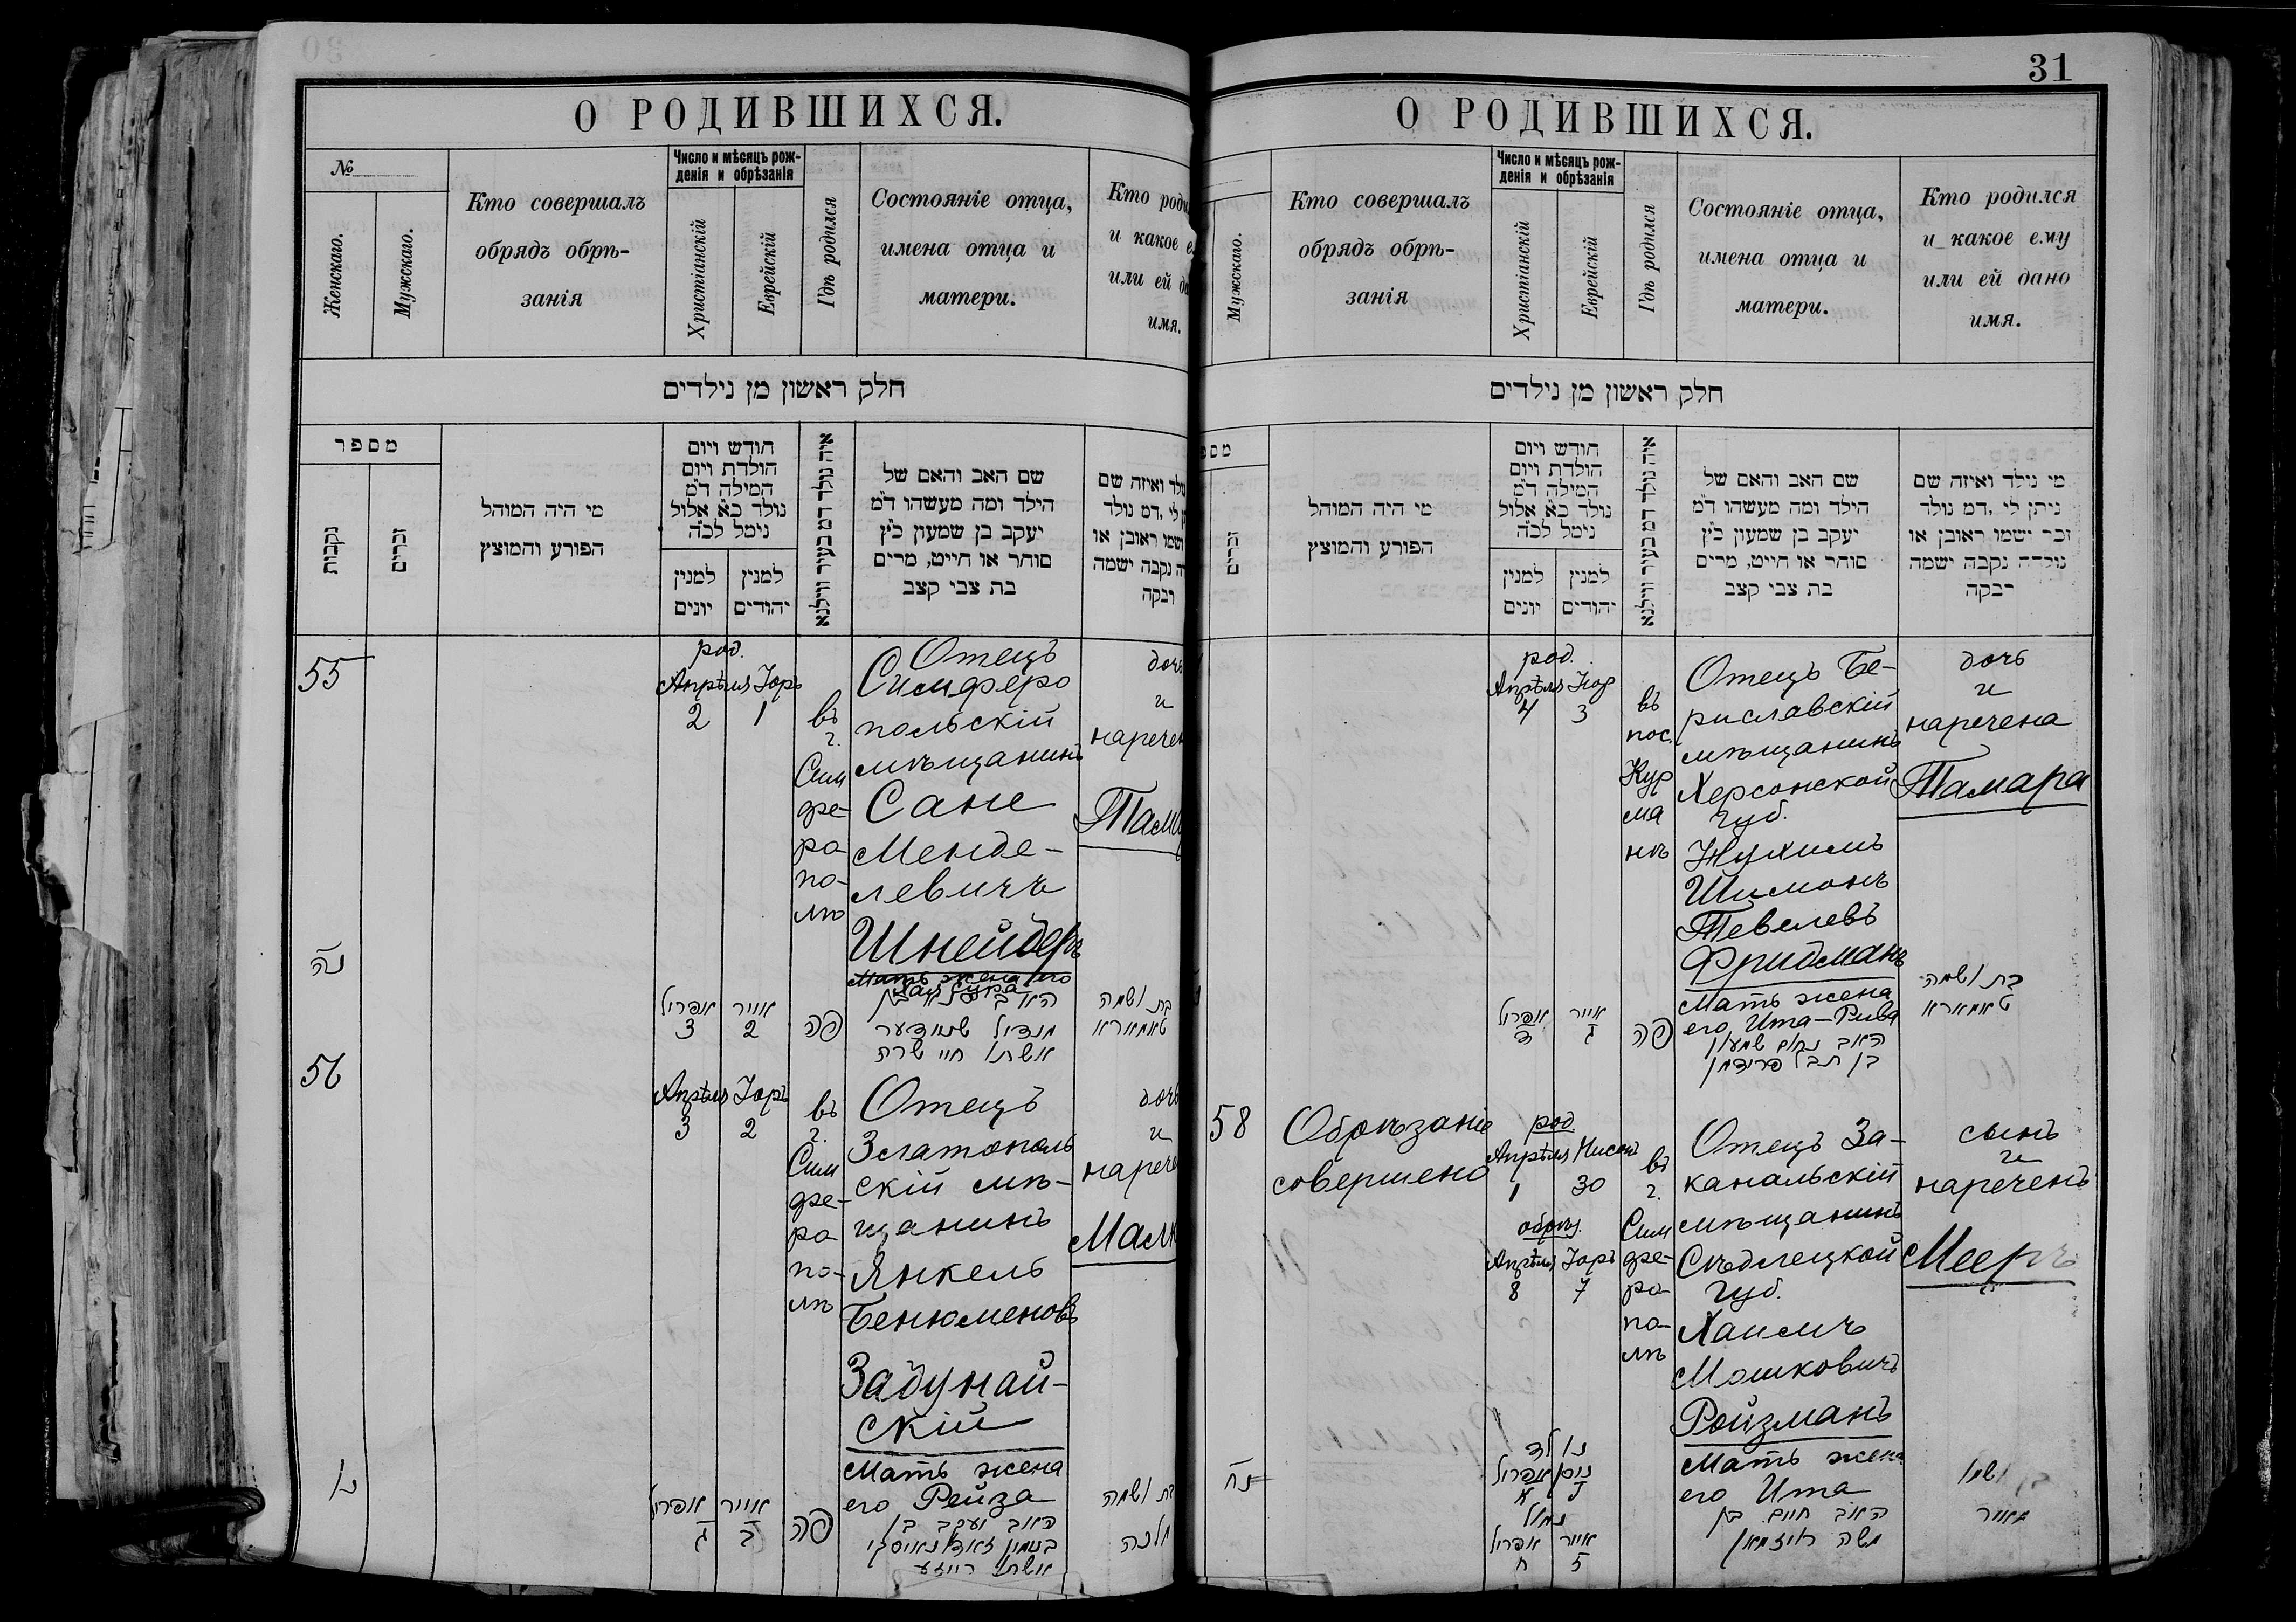 О РОДИВШИХСЯ.
№
Женскаго.
Мужскаго.
Кто совершалъ
обрядъ обрѣ-
занія
Число и мѣсяцъ рож-
денія и обрѣзанія
Христіанскій
Еврейскій
Гдѣ родился
Состояніе отца,
имена отца и
матери.
Кто роди
и какое е
или ей да
имя.
חלק ראשון מן נילדים
מספר
נקבות
זכרים
מי היה המוהל
הפורע והמוצץ
חודש ויום
הולדת ויום
המילה ד״מ
נולד כ״א אלול
נימל לכ״ה
למנין
יונים
למנין
יהודים
איה נולד דמ בעיר ווילנא
שם האב והאם של
הילד ומה מעשהו ד״מ
יעקב בן שמעון כ״ץ
סוחר או חייט, מרים
בת צבי קצב
ולד ואיזה שם
לי ,דמ נולד
ושמו ראובן או
נקבה ישמה
רבקה
55
род.
Апрѣля Іоръ
2 1
въ
г.
Сим
фе-
ро
по-
лѣ
Отецъ
Симферо
польскій
мѣщанинъ
Сане
Менде-
левичъ
Шнейдеръ
Мать жена его
Хая Сура
дочь
и
наречен
Там
נה
אפריל אייר
3 2
פה
האב סנא בן
מנדיל שנוידער
אשתו חיי שרה
בת ושמה
טאמארא
56
Апрѣля Іоръ
3 2
въ
г.
Сим
фе-
ро
по-
лѣ
Отецъ
Златополь
скій мѣ-
щанинъ
Янкель
Бенюменовъ
Задунай-
скій
Мать жена
его Рейза
дочь
и
нарече
Малк
נו
אפריל אייר
ג ב
פה
האב יעקב בן
בנימין זאדונאייסקי
אשתו רייזע
בת ושמה
מלכה
31
О РОДИВШИХСЯ.
Мужскаго.
Кто совершалъ
обрядъ обрѣ-
занія
Число и мѣсяцъ рож-
денія и обрѣзанія
Христіанскій
Еврейскій
Гдѣ родился
Состояніе отца,
имена отца и
матери.
Кто родился
и какое ему
или ей дано
имя.
חלק ראשון מן נילדים
מספ
זכרים
מי היה המוהל
הפורע והמוצץ
חודש ויום
הולדת ויום
המילה ד״מ
נולד כ״א אלול
נימל לכ״ה
למנין
יונים
למנין
יהודים
איה נולד דמ בעיר ווילנא
שם האב והאם של
הילד ומה מעשהו ד״מ
יעקב בן שמעון כ״ץ
סוחר או חייט, מרים
בת צבי קצב
מי נילד ואיזה שם
ניתן לי ,דמ נולד
זכר ישמו ראובן או
נולדה נקבה ישמה
רבקה
род.
Апрѣля Іор
4 3
въ
пос.
Кур
ма
нѣ
Отецъ Бе-
риславскій
мѣщанинъ
Херсонской
губ.
Нухимъ
Шимонъ
Тевелевъ
Фридманъ
Мать жена
его Ита-Рива
дочь
и
наречена
Тамара
אפריל אייר
ד ג
פה
האב נחום שמעון
בן תבל פרידמן
בת ושמה
טאמארא
58
Обрѣзаніе
совершено
род.
Апрѣля Нисенъ
1 30
обрѣз.
Апрѣля Іоръ
8 7
въ
г.
Сим
фе-
ро
по-
лѣ
Отецъ За-
канальскій
мѣщанинъ
Сѣдлецкой
губ.
Хаимъ
Мошковичъ
Ройзманъ
Мать жена
его Ита
сынъ
и
нареченъ
Мееръ
נח
נולד
אפריל ניסן
א ל
נמול
אפריל אייר
ח 5
האב חיים בן
משה רויזמאן
בן ושמו
מאיר